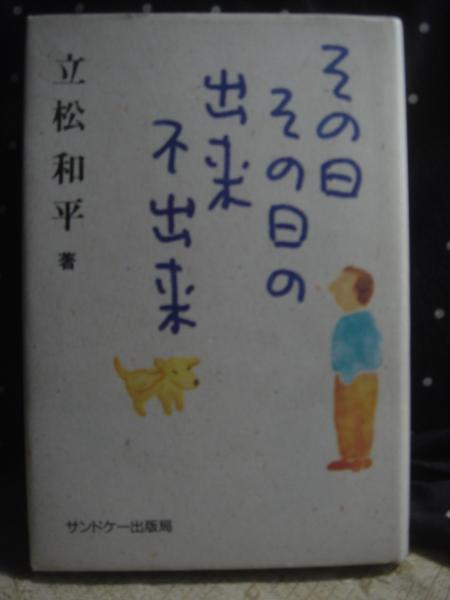 その日
その日の
出来
不出来
立松和平 著
サンドケー出版局